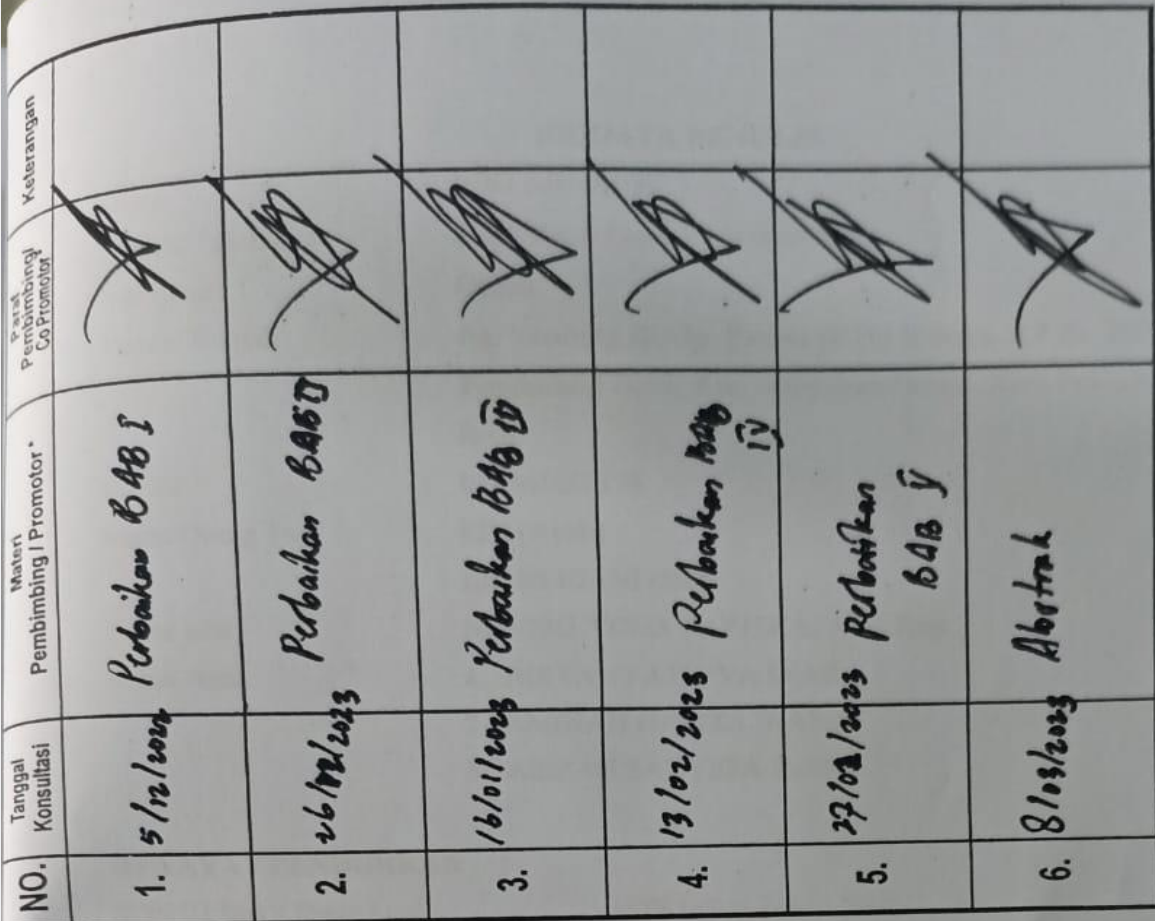 NO.
Tanggal
Konsultasi
Materi
Pembimbing / Promotor *
Paraf
Pembimbing/
Co Promotor
Keterangan
1. 5/12/2022 Perbaikan BAB I
2. 26/12/2023 Perbaikan BAB II
3. 16/01/2023 Perbaikan BAB III
4. 13/02/2023 Perbaikan BAB
IV
5. 27/02/2023 Perbaikan
BAB V
6. 8/03/2023 Abstrak